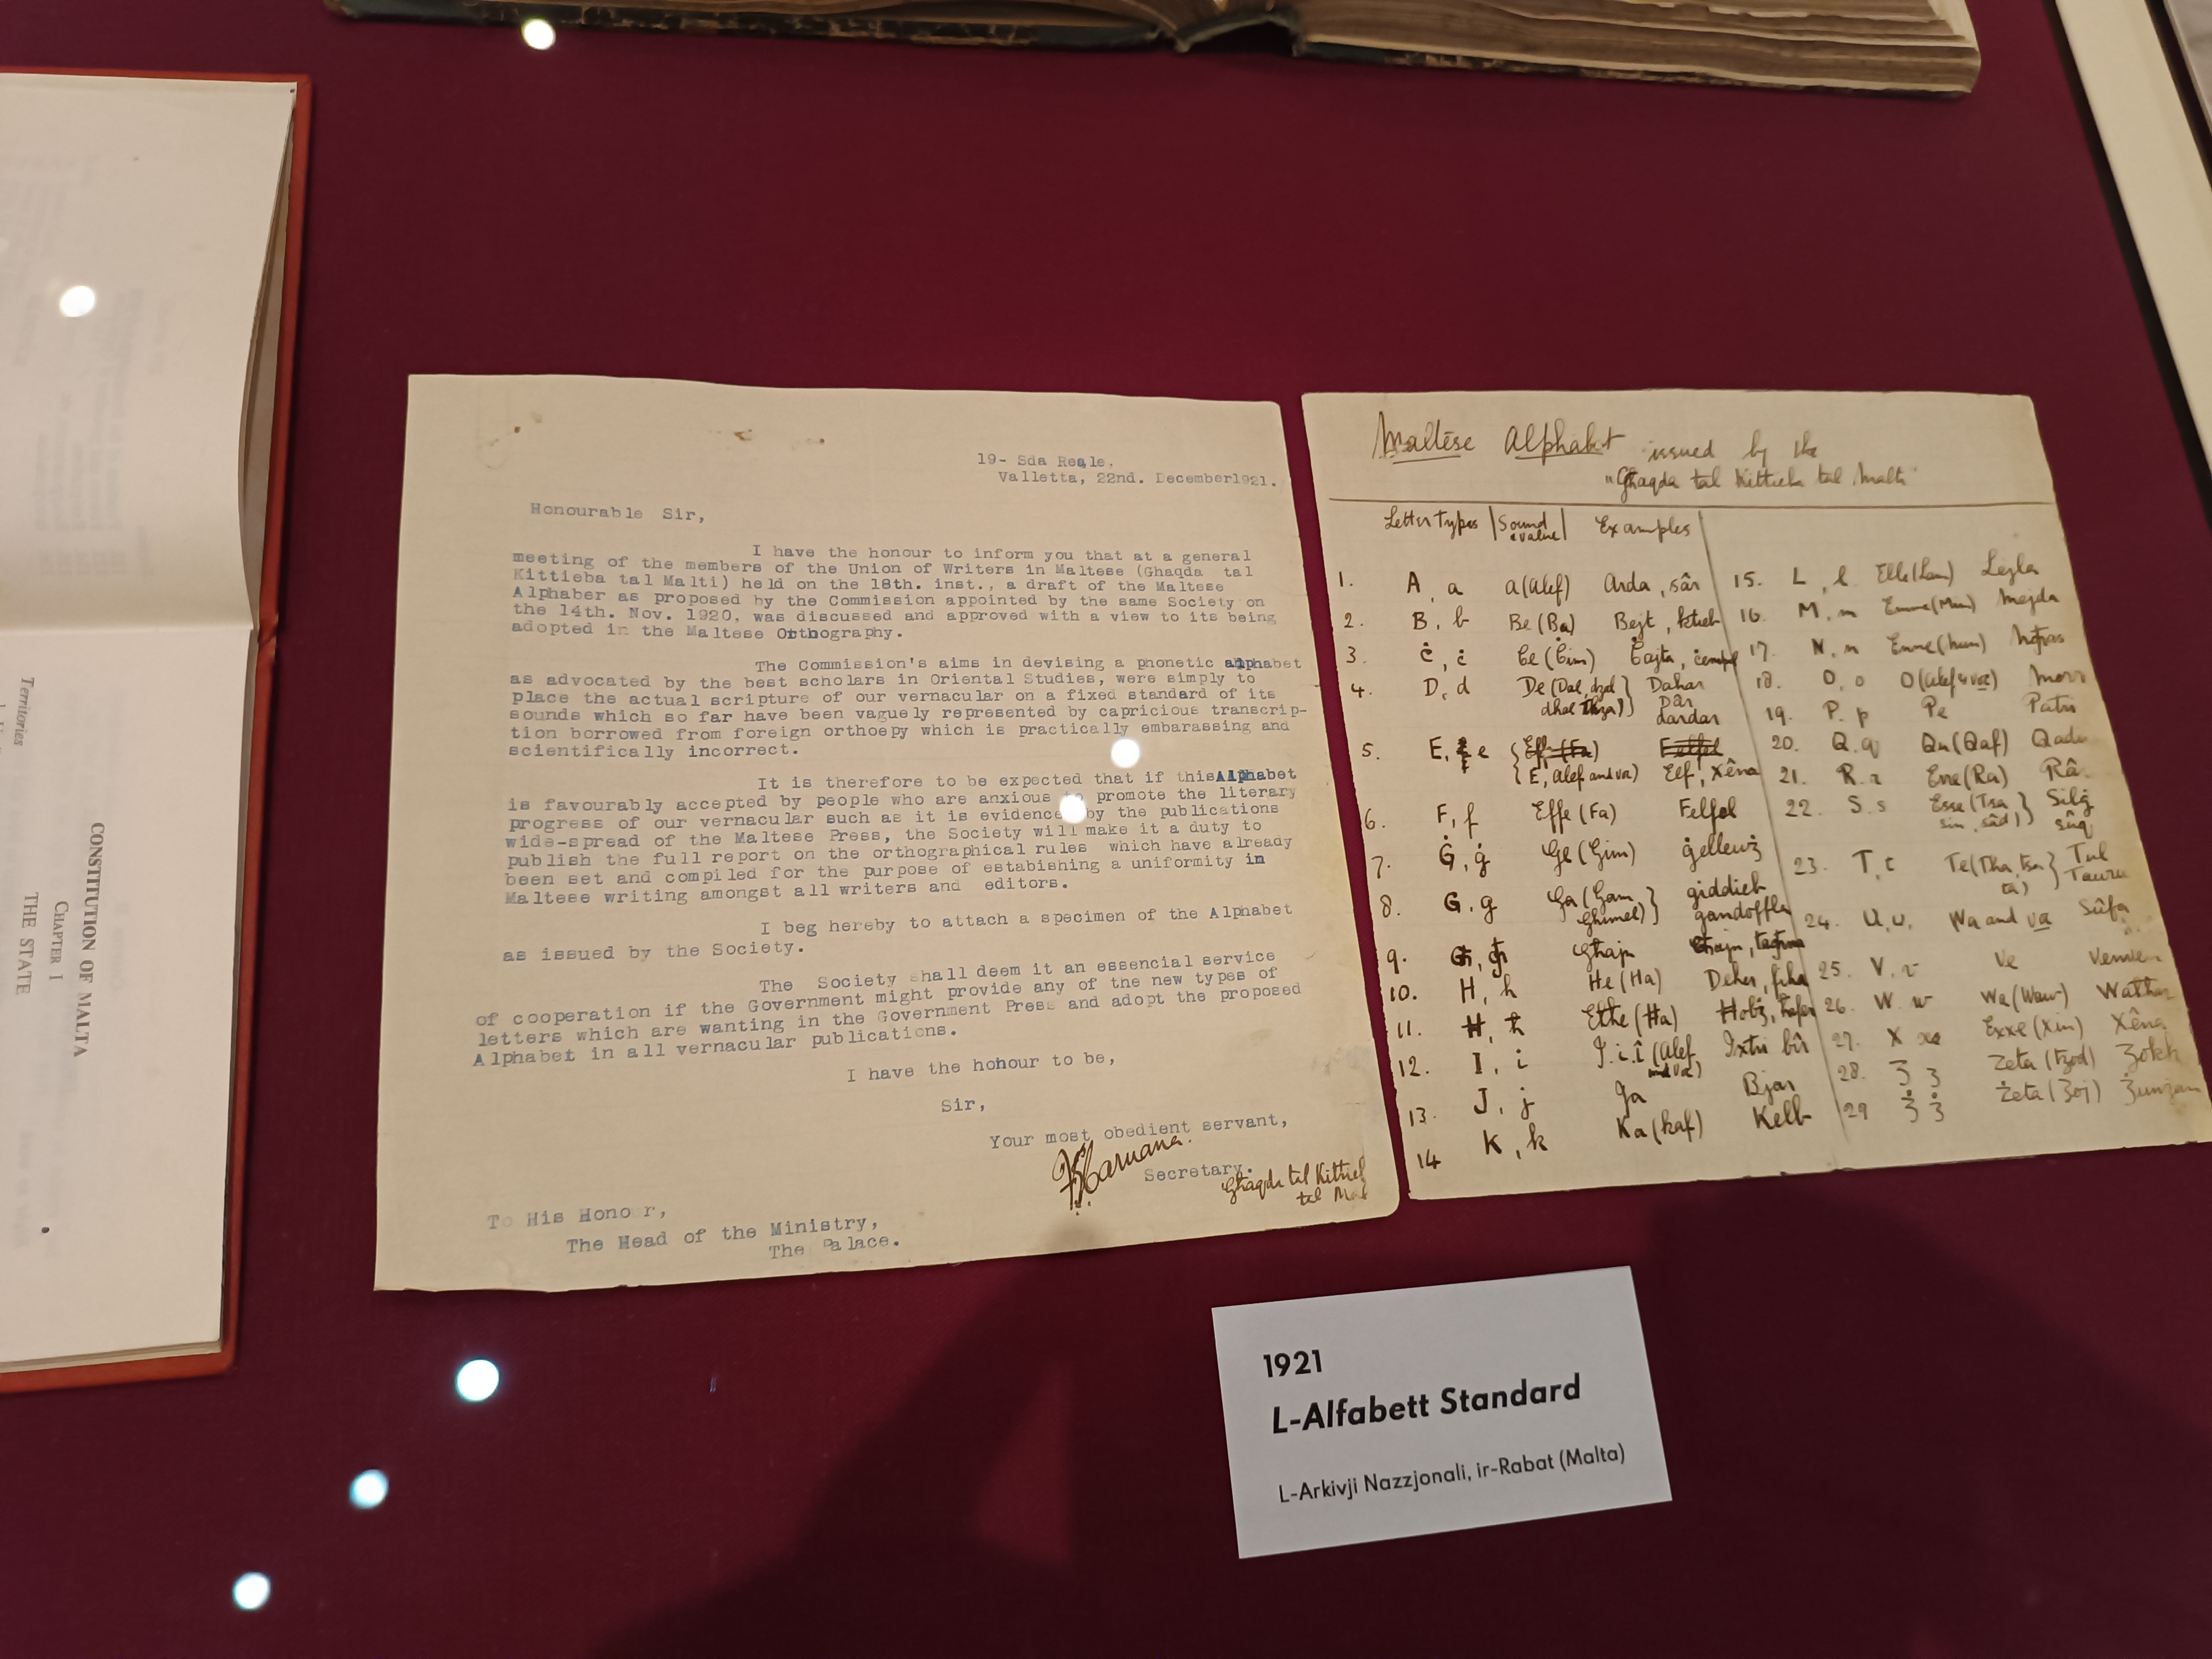 Territories
CONSTITUTION OF MALTA
CHAPTER I
THE STATE
19- Sda Reale.
Valletta, 22nd. December1921.
Honourable Sir,
I have the honour to inform you that at a general
meeting of the members of the Union of Writers in Maltese (Ghaqda tal
Kittieba tal Malti) held on the 18th. inst., a draft of the Maltese
Alphaber as proposed by the Commission appointed by the same Society on
the 14th. Nov. 1920, was discussed and approved with a view to its being
adopted in the Maltese Orthography.
The Commission's aims in devising a phonetic alphabet
as advocated by the best scholars in Oriental Studies, were simply to
place the actual scripture of our vernacular on a fixed standard of its
sounds which so far have been vaguely represented by capricious transcrip-
tion borrowed from foreign orthoepy which is practically embarassing and
scientifically incorrect.
It is therefore to be expected that if thisAlphabet
is favourably accepted by people who are anxious to promote the literary
progress of our vernacular such as it is evidence by the publications
wide-spread of the Maltese Press, the Society will make it a duty to
publish the full report on the orthographical rules which have already
been set and compiled for the purpose of estabishing a uniformity in
Maltese writing amongst all writers and editors.
I beg hereby to attach a specimen of the Alphabet
as issued by the Society.
The Society shall deem it an essencial service
of cooperation if the Government might provide any of the new types of
letters which are wanting in the Government Press and adopt the proposed
Alphabet in all vernacular publications.
I have the honour to be,
Sir,
Your most obedient servant,
Caruana.
Secretary.
Għaqda tal Kittieb
tal
To His Honour,
The Head of the Ministry,
The Palace.
Maltese Alphabet issued by the
"Għaqda tal Kittieba tal Malti"
Letter Types | Sound value | Examples
1. A, a a(Alef) Arda, sâr
2. B, b Be (Ba) Bejt, ktieb
3. Ċ, ċ Ċe (Ċim) Ċajta,
4. D, d De (Dal, dzal Dahar
dhal ) Dâr
dardar
5. E, e
E, Alef and va) Elf, Xêna
6. F, f Effe (Fa) Felfel
7. Ġ, ġ Ġe (Ġim) ġellewż
8. G, g Ga (Gam giddieb
Ghimel) gandoffla
9. Għ, għ Għajn Għajn,
10. H, h He (Ha) Deher, fiha
11. Ħ, ħ Ħobż,
12. I, i I. i. î (Alef Ixtri bîr
and va)
13. J, j Ja Bjar
14 K, k Ka (kaf) Kelb
15. L, l Elle (Lam) Lejla
16. M, m Emme (Mim) Mejda
17. N, n
18. O, o O (alef & va) Morr
19. P. p Pe Patri
20. Q. q Qu (Qaf)
21. R. r Erre (Ra) Râ
22. S. s Esse (Tsa Silġ
sin, sâd) sûq
23. T, t Te (Tha, tsa
ta)
24. U. u. Wa and va Sûfa
25. V. v Ve
26. W. w Wa (Waw)
27. X x Exxe (Xin) Xêna
28. Z z Zeta
29 Ż ż Żeta
1921
L-Alfabett Standard
L-Arkivji Nazzjonali, ir-Rabat (Malta)